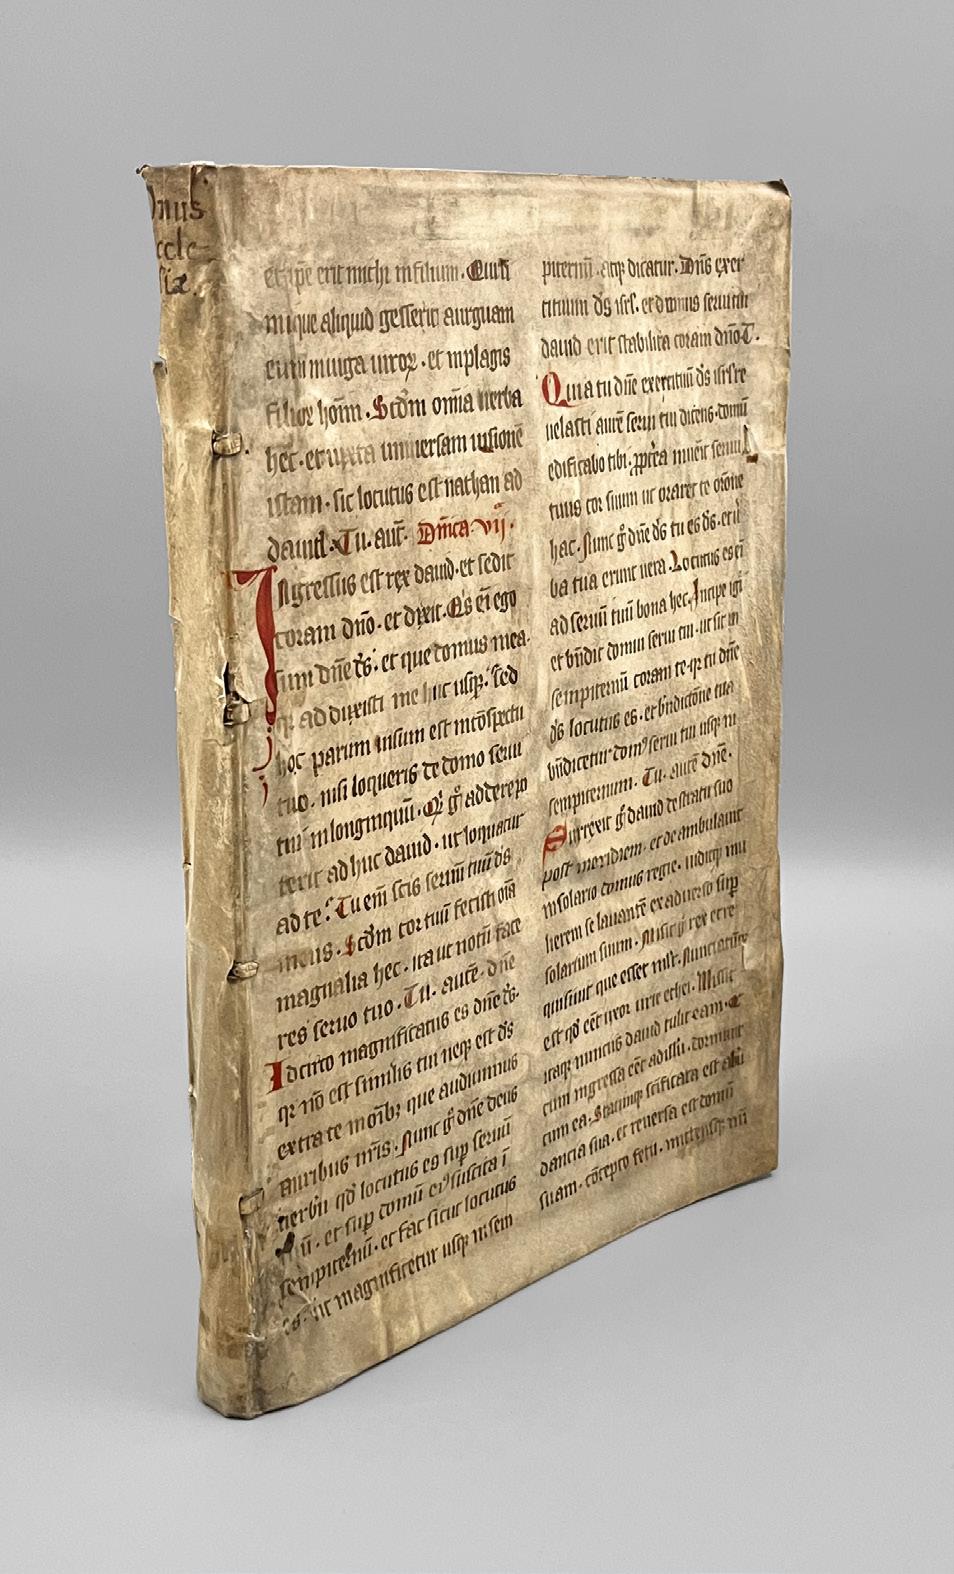 nus
ccle-
siæ.
et ip̄e erit michi in filium. Qui si
inique aliquid gesserit arguam
eum in uirga uiroꝝ. et in plagis
filioꝝ hoīm. Scdm om̄ia uerba
hec. et iuxta uniuersam uisionē
istam. sic locutus est nathan ad
dauid. Tu. aut̄. Dn̄ica. vijᵃ.
Ingressus est rex dauid. et sedit
coram dn̄o. et dixit. Qͥs eī ego
sum dn̄e ds̄. et que domus mea.
qꝛ adduxisti me huc usqꝫ. sed
hoc parum uisum est in cōspectu
tuo. nisi loqueris de domo serui
tui in longinquū. Qͥd gͦ addere po
terit ad huc dauid. ut loquatur
ad te? Tu enī scis seruū tuū ds̄
meus. Scdm cor tuū fecisti oīa
magnalia hec. ita ut notū face
res seruo tuo. Tu. autē. dn̄e
Idcirco magnificatus es dn̄e ds̄.
qꝛ nō est similis tui neqꝫ est ds̄
extra te in om̄ibꝫ que audiuimus
auribus nr̄is. Nunc gͦ dn̄e deus
uerbū qd̄ locutus es sup̄ seruū
tuū. et sup̄ domū eiꝰ suscita ī
sempiternū. et fac sicut locutus
es. ut magnificetur usqꝫ in sem
piternū. atqꝫ dicatur. Dn̄s exer
cituum ds̄ isrl̄. et domus serui tui
dauid erit stabilita coram dn̄o. T.
Quia tu dn̄e exercituū ds̄ isrl̄ re
uelasti aurē serui tui dicens. domū
edificabo tibi. ꝓpterea inuenit seruus
tuus cor suum ut oraret te orōne
hac. Nunc gͦ dn̄e ds̄ tu es ds̄. et ū
ba tua erunt uera. Locutus es eī
ad seruū tuū bona hec. Incipe igͥ
et bn̄dic domui serui tui. ut sit in
sempiternū coram te. qꝛ tu dn̄e
ds̄ locutus es. et bn̄dictōne tua
bn̄dicetur domꝰ serui tui usqꝫ in
sempiternum. Tu. autē dn̄e.
Surrexit gͦ dauid de stratu suo
post meridiem. et deambulauit
in solario domus regie. uiditqꝫ mu
lierem se lauantē ex aduerso sup̄
solarium suum. Misit gͦ rex et re
quisiuit que esset ml̄r. Nunciatūqꝫ
est qd̄ eēt uxor urie ethei. Missis
itaqꝫ nunciis dauid tulit eam. Que
cum ingressa eēt ad illū. dormiuit
cum ea. Statimqꝫ scīficata est ab ī
dancia sua. et reuersa est domū
suam. cōcepto fetu. mittensqꝫ nū